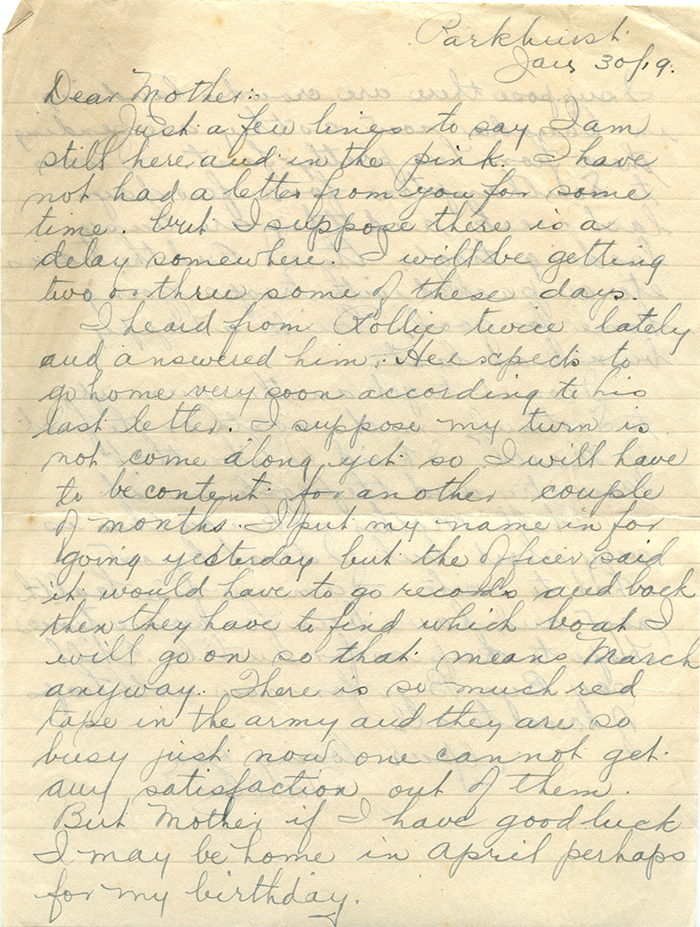 Parkhurst.
Jan 30/19.
Dear Mother:
Just a few lines to say I am
still here and in the pink. I have
not had a letter from you for some
time. but I suppose there is a
delay somewhere. I will be getting
two or three some of these days.
I heard from Rollie twice lately
and answered him. He expects to
go home very soon according to his
last letter. I suppose my turn is
not come along yet so I will have
to be content for another couple
of months. I put my name in for
going yesterday but the officer said
it would have to go records and back
then they have to find which boat I
will go on so that means March
anyway. There is so much red
tape in the army and they are so
busy just now one cannot get
any satisfaction out of them.
But Mother if I have good luck
I may be home in April perhaps
for my birthday.